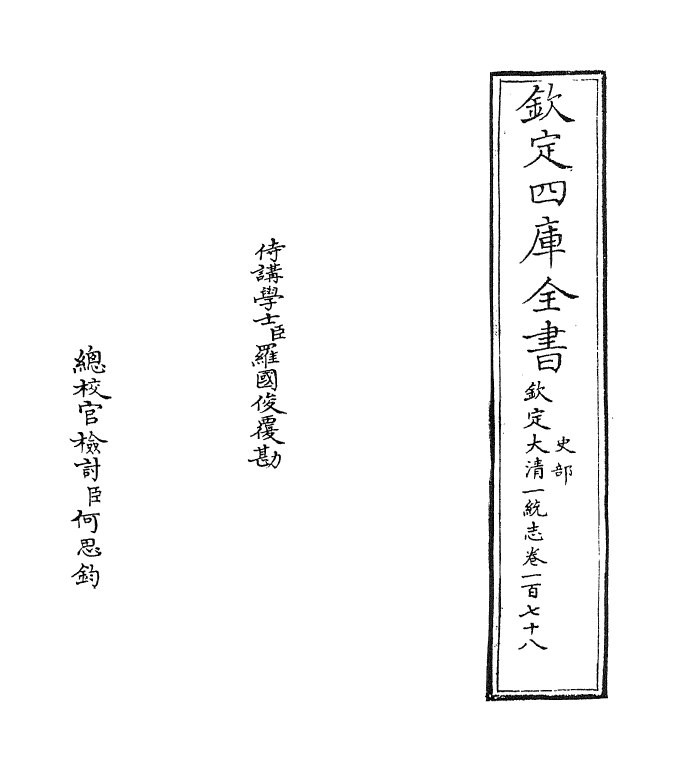 欽定四庫全書
史部
欽定大清一統志卷一百七十八
侍講學士臣羅國俊覆勘
總校官檢討臣何思鈞